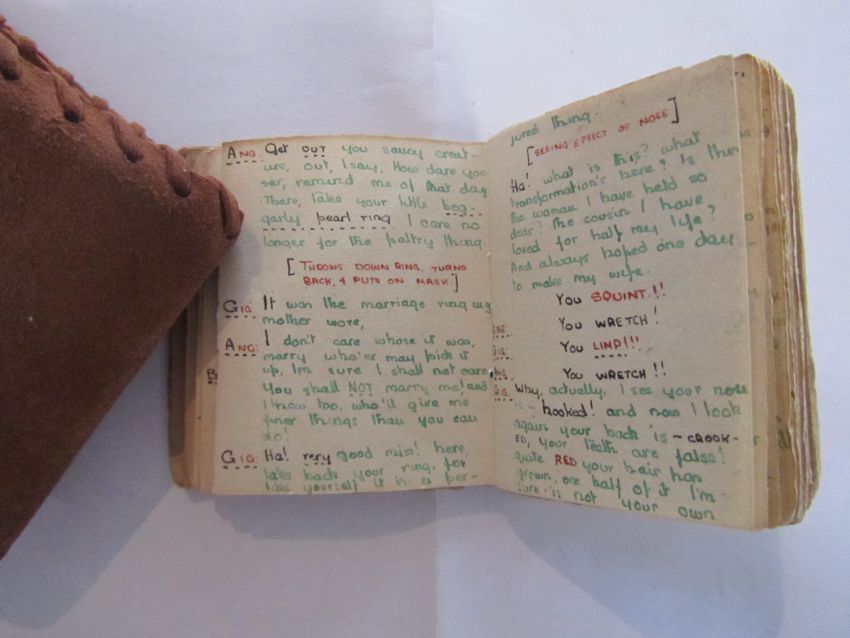 ANG: Get OUT you saucy creat-
ure, out, I say, How dare you
ser, remind me of that day
There, take your little beg-
garly pearl ring, I care no
longer for the paltry thing.
[THROWS DOWN RING, TURNS
BACK, & PUTS ON MASK]
GIG: It was the marriage ring my
mother wore,
ANG: I don't care whose it was,
marry who'er may pick it
up, Im sure I shall not care
You shall NOT marry me! and
I know too, who'll give me
finer things than you can
do!
GIG: Ha! very good miss! here,
take back your ring, for
take yourself it in a per-
jured thing.
[SEEING EFFECT OF NOSE]
Ha! what is this? what
transformation's here? Is this
the woman I have held so
dear? The cousin I have
loved for half my life?
And always hoped one day
to make my wife.
You SQUINT!!
ANG: You WRETCH!
GIG: You LIMP!!!
ANG: You WRETCH!!
GIG: Why, actually, I see your nose
is - hooked! and now I look
again your back is ~ CROOK-
ED, your teeth are false!
quite RED your hair has
grown, one half of it I'm
sure is not your own